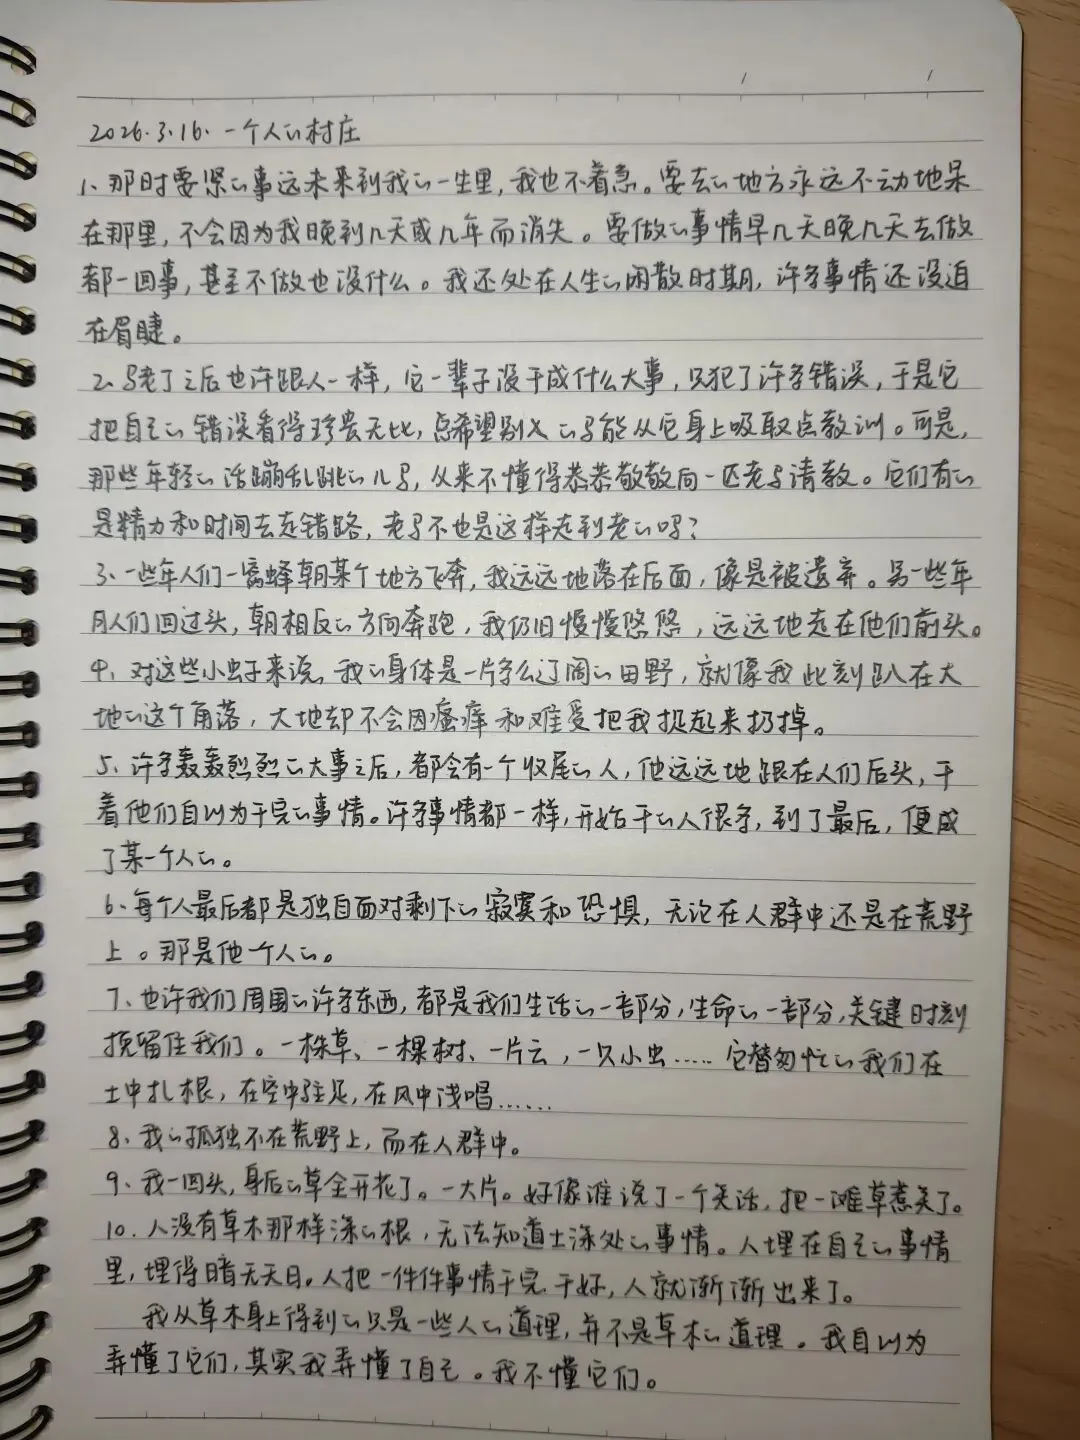 2026.3.16. 一个人的村庄
1、那时要紧的事远未来到我的一生里，我也不着急。要去的地方永远不动地呆
在那里，不会因为我晚到几天或几年而消失。要做的事情早几天晚几天去做
都一回事，甚至不做也没什么。我还处在人生的闲散时期，许多事情还没迫
在眉睫。
2、马老了之后也许跟人一样，它一辈子没干成什么大事，只犯了许多错误，于是它
把自己的错误看得珍贵无比，总希望别人的马能从它身上吸取点教训。可是，
那些年轻的活蹦乱跳的儿马，从来不懂得恭恭敬敬向一匹老马请教。它们有的
是精力和时间去走错路，老马不也是这样走到老的吗？
3、一些年人们一窝蜂朝某个地方飞奔，我远远地落在后面，像是被遗弃。另一些年
月人们回过头，朝相反的方向奔跑，我仍旧慢慢悠悠，远远地走在他们前头。
4、对这些小虫子来说，我的身体是一片多么辽阔的田野，就像我此刻趴在大
地的这个角落，大地却不会因瘙痒和难受把我捉起来扔掉。
5、许多轰轰烈烈的大事之后，都会有一个收尾的人，他远远地跟在人们后头，干
着他们自以为干完的事情。许多事情都一样，开始干的人很多，到了最后，便成
了某一个人的。
6、每个人最后都是独自面对剩下的寂寞和恐惧，无论在人群中还是在荒野
上。那是他一个人的。
7、也许我们周围的许多东西，都是我们生活的一部分，生命的一部分，关键时刻
挽留住我们。一株草、一棵树、一片云，一只小虫……它替匆忙的我们在
土中扎根，在空中驻足，在风中浅唱……
8、我的孤独不在荒野上，而在人群中。
9、我一回头，身后的草全开花了。一大片。好像谁说了一个笑话，把一滩草惹笑了。
10、人没有草木那样深的根，无法知道土深处的事情。人埋在自己的事情
里，埋得暗无天日。人把一件件事情干完，干好，人就渐渐出来了。
我从草木身上得到的只是一些人的道理，并不是草木的道理。我自以为
弄懂了它们，其实我弄懂了自己。我不懂它们。